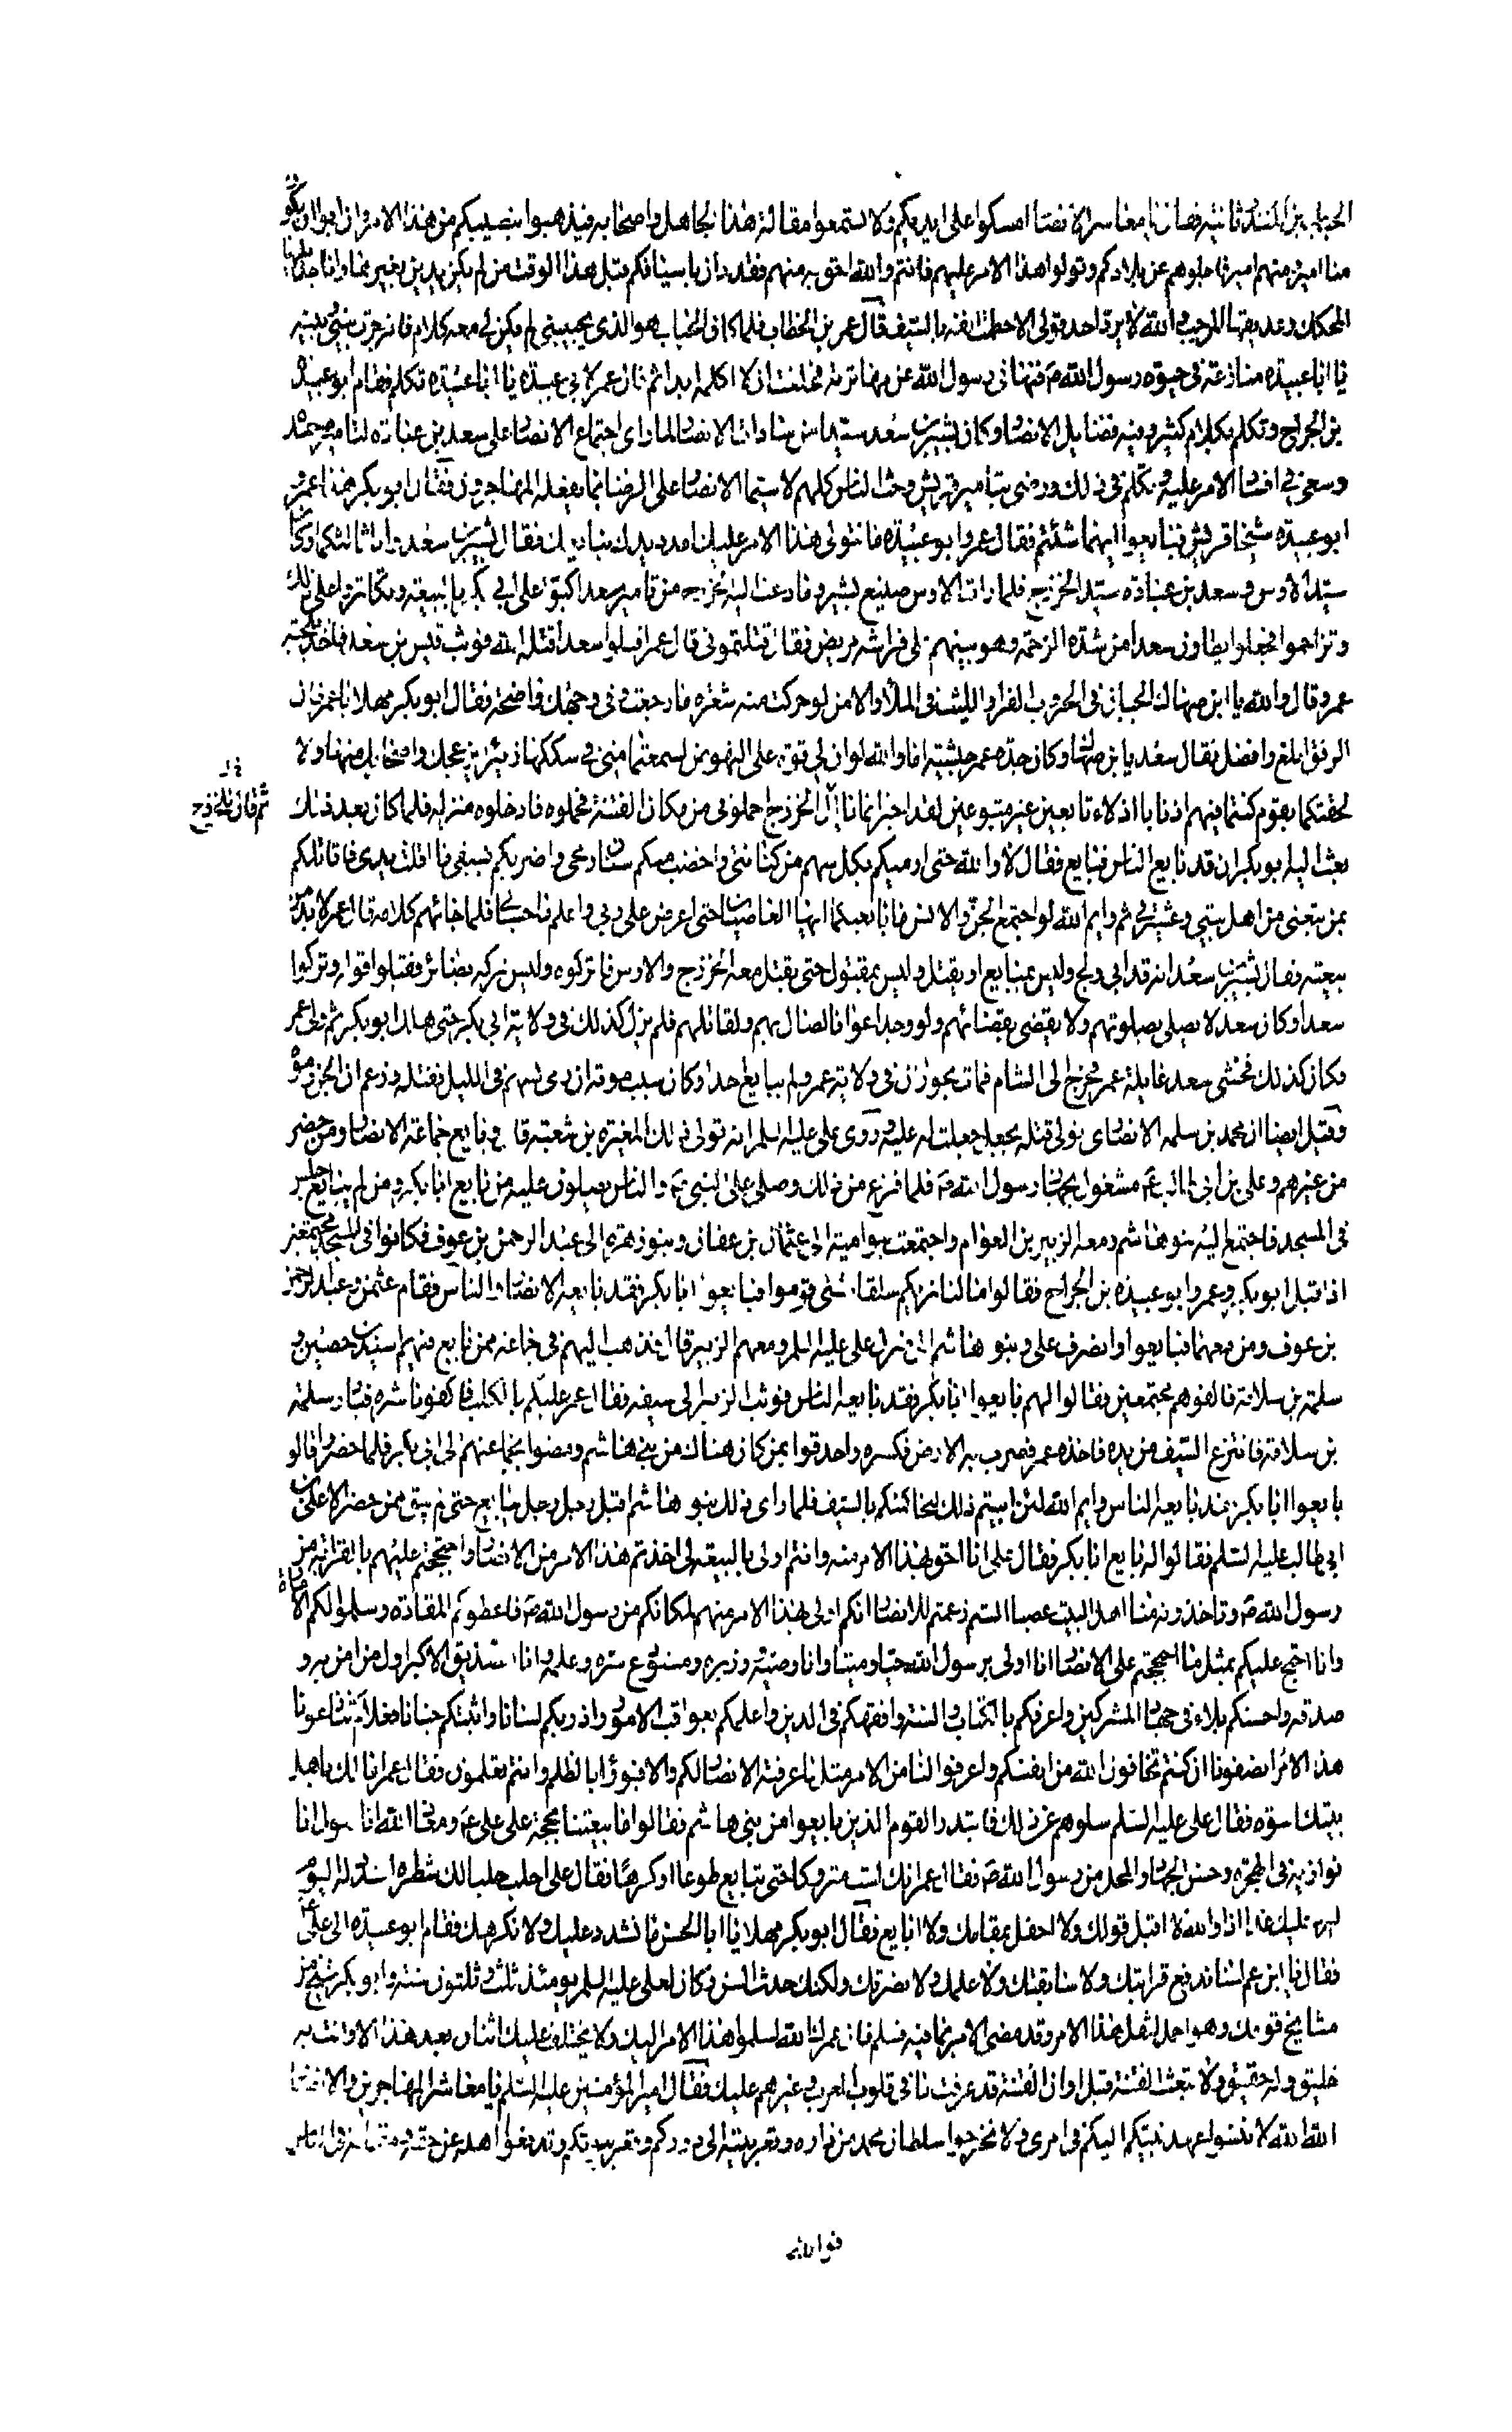 الحباب بن المنذر ثانية فقال يا معاشر الانصار امسكوا على ايديكم ولا تسمعوا مقالة هذا الجاهل واصحابه فيذهبوا بنصيبكم من هذا الامر وان ابوا ان يكون
منا امير ومنهم امير فاجلوهم عن بلادكم وتولوا هذا الامر عليهم فانتم والله احق به منهم فقد دان باسيافكم قبل هذا الوقت من لم يكن يدين بغيرها وانا جذيلها
المحكك وعذيقها المرجب والله لا يرد احد قولي الا حطمت انفه بالسيف قال عمر بن الخطاب فلما كان الحباب هو الذي يجيبني لم يكن لي معه كلام فانه جرت بيني وبينه
منازعة في حيوة رسول الله ص فنهاني رسول الله عن مهاترته فحلفت ان لا اكلمه ابدا ثم قال عمر لابي عبيدة يا ابا عبيدة تكلم فقام ابو عبيدة
بن الجراح وتكلم بكلام كثير وذكر فيه فضايل الانصار وكان بشير بن سعد سيدا من سادات الانصار لما راى اجتماع الانصار على سعد بن عبادة لتاميره حسده
وسعى في افساد الامر عليه وتكلم في ذلك ورضي بتامير قريش وحث الناس كلهم لا سيما الانصار على الرضا بما يفعله المهاجرون فقال ابو بكر هذا عمر و
ابو عبيدة شيخا قريش فبايعوا ايهما شئتم فقال عمر وابو عبيدة ما نتولى هذا الامر عليك امدد يدك نبايعك فقال بشير بن سعد وانا ثالثكما وكان
سيد الاوس وسعد بن عبادة سيد الخزرج فلما رات الاوس صنيع بشير وما دعت اليه الخزرج من تامير سعد اكبوا على ابي بكر بالبيعة وتكاثروا على ذلك
وتزاحموا فجعلوا يطاون سعدا من شدة الزحمة وهو بينهم على فراشه مريض فقال قتلتموني قال عمر اقتلوا سعدا قتله الله فوثب قيس بن سعد فاخذ بلحية
عمر وقال والله يا ابن صهاك الجبان في الحروب الفرار الليث في الملأ والامن لو حركت منه شعرة ما رجعت وفي وجهك واضحة فقال ابو بكر مهلا يا عمر فان
الرفق ابلغ وافضل فقال سعد يا بن صهاك وكان جده عمر حبشية اما والله لو ان لي قوة على النهوض لسمعتما مني في سككها زئيرا يزعجك واصحابك منها ولا
لحقتكما بقوم كنتما فيهم اذنابا اذلاء تابعين غير متبوعين لقد اجترأتما يا آل الخزرج احملوني من مكان الفتنة فحملوه فادخلوه منزله فلما كان بعد ذلك
ثم قال للخزرج
بعث اليه ابو بكر ان قد بايع الناس فبايع فقال لا والله حتى ارميكم بكل سهم من كنانتي واخضب منكم سنان رمحي واضربكم بسيفي ما اقلت يدي فاقاتلكم
بمن تبعني من اهل بيتي وعشيرتي ثم وايم الله لو اجتمع الجن والانس ما بايعتكما ايها الغاصبان حتى اعرض على ربي واعلم ما حسابي فلما جاءهم كلامه قال عمر لا بد من
بيعته فقال بشير بن سعد انه قد ابى ولج وليس بمبايع او يقتل وليس بمقتول حتى يقتل معه الخزرج والاوس فاتركوه وليس تركه بضائر فقبلوا قوله وتركوا
سعدا وكان سعد لا يصلي بصلوتهم ولا يقضي بقضائهم ولو وجد اعوانا لصال بهم ولقاتلهم فلم يزل كذلك في ولاية ابي بكر حتى هلك ابو بكر ثم ولى عمر
وكان كذلك فخشي سعد غايلة عمر فخرج الى الشام فمات بحوران في ولاية عمر ولم يبايع احدا وكان سبب موته ان رمي بسهم في الليل فقتله وزعم ان الجن رموه
وقيل ايضا ان محمد بن سلمة الانصاري تولى قتله بجعل جعلت له عليه وروى على عليه السلم انه تولى ذلك المغيرة بن شعبة قال وبايع جماعة الانصار ومن حضر
من غيرهم وعلي بن ابي طالب ع مشغول بجهاز رسول الله ص فلما فرغ من ذلك وصلى على النبي ص والناس يصلون عليه من بايع ابا بكر ومن لم يبايع جلس
في المسجد فاجتمع اليه بنو هاشم ومعه الزبير بن العوام واجتمعت بنو امية الى عثمان بن عفان وبنو زهرة الى عبد الرحمن بن عوف فكانوا في المسجد مجتمعين
اذ اقبل ابو بكر وعمر وابو عبيدة بن الجراح فقالوا ما لنا نريكم حلقا شتى قوموا فبايعوا ابا بكر فقد بايعه الانصار والناس فقام عثمن وعبد الرحمن
بن عوف ومن معهما فبايعوا وانصرف علي وبنو هاشم الى منزل علي عليه السلم ومعهم الزبير قال فذهب اليهم في جماعة ممن بايع فيهم اسيد بن حصين و
سلمة بن سلامة فالفوهم مجتمعين فقالوا لهم بايعوا ابا بكر فقد بايعه الناس فوثب الزبير الى سيفه فقال عمر عليكم بالكلب فاكفونا شره فبادر سلمة
بن سلامة فانتزع السيف من يده فاخذه عمر فضرب به الارض فكسره واحدقوا بمن كان هناك من بني هاشم ومضوا بجماعتهم الى ابي بكر فلما حضروا قالوا
بايعوا ابا بكر فقد بايعه الناس وايم الله لئن ابيتم ذلك لنحاكمنكم بالسيف فلما راى ذلك بنو هاشم اقبل رجل رجل يبايع حتى لم يبق ممن حضر الا علي بن
ابي طالب عليه السلم فقالوا له بايع ابا بكر فقال علي انا احق بهذا الامر منه وانتم اولى بالبيعة لي اخذتم هذا الامر من الانصار واحتججتم عليهم بالقرابة من
رسول الله ص وتاخذونه منا اهل البيت غصبا الستم زعمتم للانصار انكم اولى بهذا الامر منهم لمكانكم من رسول الله ص فاعطوكم المقادة وسلموا لكم الامارة
وانا احتج عليكم بمثل ما احتججتم على الانصار انا اولى برسول الله حيا وميتا وانا وصيه ووزيره ومستودع سره وعلمه وانا الصديق الاكبر اول من امن به و
صدقه واحسنكم بلاء في جهاد المشركين واعرفكم بالكتاب والسنة وافقهكم في الدين واعلمكم بعواقب الامور واذربكم لسانا واثبتكم جنانا فعلام تنازعونا
هذا الامر انصفونا ان كنتم تخافون الله من انفسكم واعرفوا لنا من الامر مثل ما عرفته الانصار لكم والا فبوؤا بالظلم وانتم تعلمون فقال عمر اما لك باهل
بيتك اسوة فقال علي عليه السلم سلوهم عن ذلك فابتدر القوم الذين بايعوا من بني هاشم فقالوا ما بيعتنا بحجة على علي ع ومعاذ الله ان نقول انا
نوازيه في الهجرة وحسن الجهاد والمحل من رسول الله ص فقال عمر انك لست متروكا حتى تبايع طوعا او كرها فقال علي احلب حلبا لك شطره اشدد له اليوم
ليرد عليك غدا اذا والله لا اقبل قولك ولا احفل بمقامك ولا ابايع فقال ابو بكر مهلا يا ابا الحسن ما نشدد عليك ولا نكرهك فقام ابو عبيدة الى علي ع
فقال يا ابن عم لسنا ندفع قرابتك ولا سابقتك ولا علمك ولا نصرتك ولكنك حدث السن وكان لعلي عليه السلم يومئذ ثلث وثلثون سنة وابو بكر شيخ من
مشايخ قومك وهو احمل لثقل هذا الامر وقد مضى الامر بما فيه فسلم فان عمرك الله لسلموا هذا الامر اليك ولا يختلف عليك اثنان بعد هذا الا وانت به
خليق وله حقيق ولا تبعث الفتنة قبل اوان الفتنة قد عرفت ما في قلوب العرب وغيرهم عليك فقال امير المؤمنين عليه السلم يا معاشر المهاجرين والانصار
الله الله لا تنسوا عهد نبيكم اليكم في امري ولا تخرجوا سلطان محمد من داره وقعر بيته الى دوركم وقعر بيوتكم وتدفعوا اهله عن حقه ومقامه في الناس
فوالله